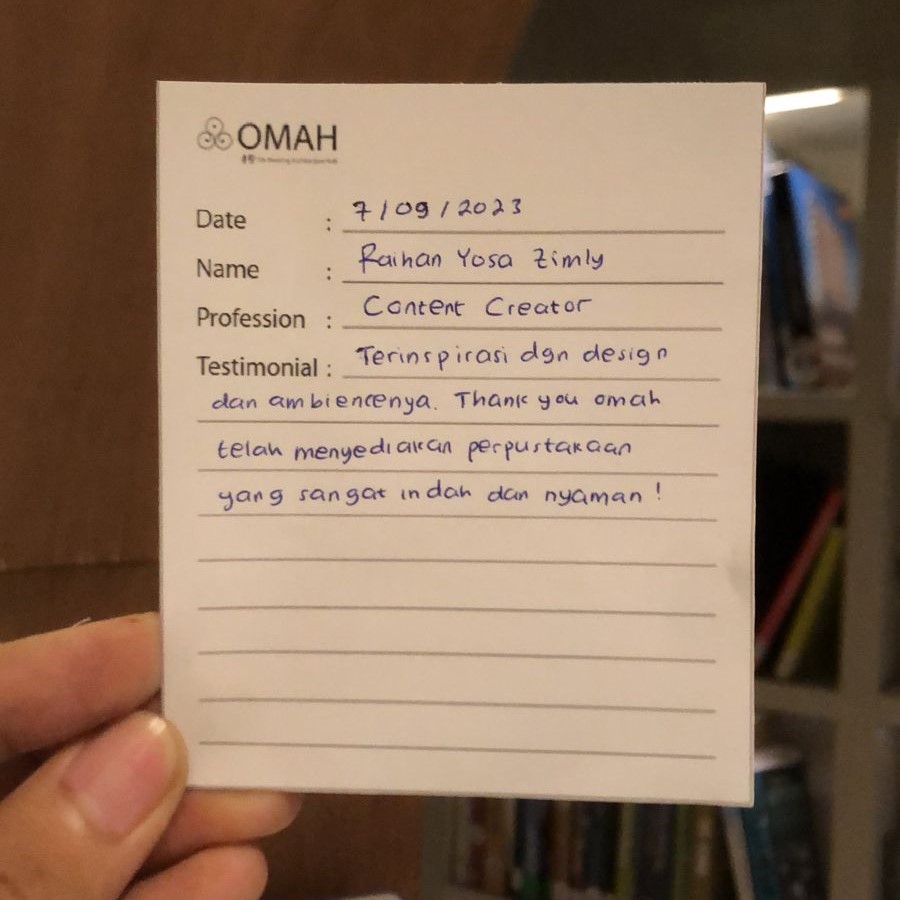 OMAH
Date : 7/09/2023
Name : Raihan Yosa Zimly
Profession : Content Creator
Testimonial : Terinspirasi dgn design
dan ambiencenya. Thank you omah
telah menyediakan perpustakaan
yang sangat indah dan nyaman !